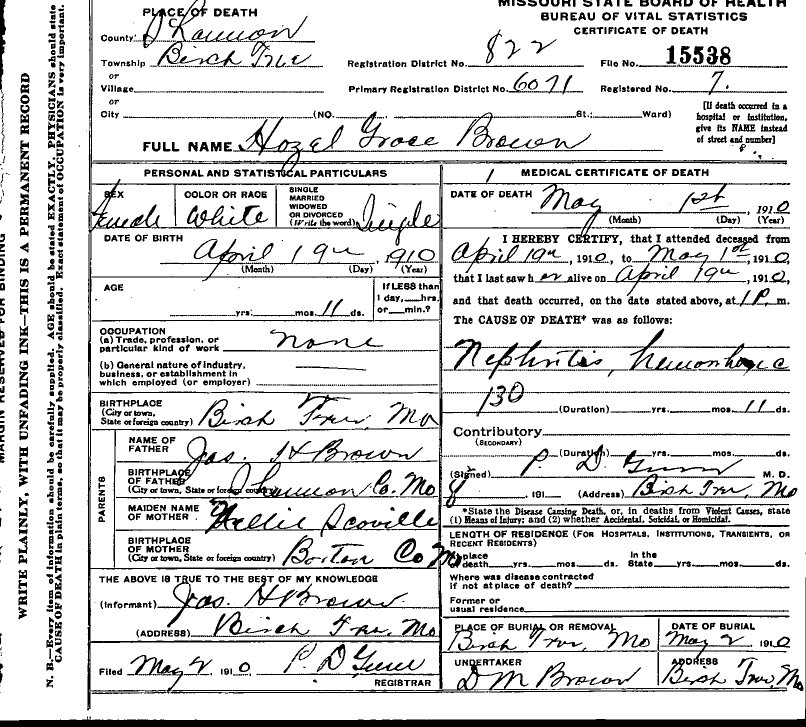 MISSOURI STATE BOARD OF HEALTH
BUREAU OF VITAL STATISTICS
CERTIFICATE OF DEATH
PLACE OF DEATH
County Shannon
Township Birch Tree
or
Village
or
City (NO. St.; Ward)
Registration District No. 822 File No. 15538
Primary Registration District No. 6071 Registered No. 7.
[If death occurred in a hospital or institution, give its NAME instead of street and number]
FULL NAME Hazel Grace Brown
PERSONAL AND STATISTICAL PARTICULARS
SEX Female
COLOR OR RACE White
SINGLE MARRIED WIDOWED OR DIVORCED (Write the word) Single
DATE OF BIRTH April 19th, 1910
(Month) (Day) (Year)
AGE yrs. mos. 11 ds.
If LESS than 1 day, hrs. or min.?
OCCUPATION
(a) Trade, profession, or particular kind of work none
(b) General nature of industry, business, or establishment in which employed (or employer)
BIRTHPLACE
(City or town, State or foreign country) Birch Tree, Mo
PARENTS
NAME OF FATHER Jas. H Brown
BIRTHPLACE OF FATHER
(City or town, State or foreign country) Shannon Co. Mo
MAIDEN NAME OF MOTHER Nellie Scoville
BIRTHPLACE OF MOTHER
(City or town, State or foreign country) Barton Co Mo
THE ABOVE IS TRUE TO THE BEST OF MY KNOWLEDGE
(Informant) Jas. H Brown
(ADDRESS) Birch Tree, Mo
Filed May 2 1910 P. D Gunn
REGISTRAR
MEDICAL CERTIFICATE OF DEATH
DATE OF DEATH May 1st, 1910
(Month) (Day) (Year)
I HEREBY CERTIFY, that I attended deceased from
April 19th, 1910, to May 1st, 1910,
that I last saw her alive on April 19th, 1910,
and that death occurred, on the date stated above, at 1 P. m.
The CAUSE OF DEATH* was as follows:
Nephritis, hemorrhagic
130
(Duration) yrs. mos. 11 ds.
Contributory
(SECONDARY)
(Duration) yrs. mos. ds.
(Signed) P. D. Gunn M. D.
, 191 (Address) Birch Tree, Mo
*State the Disease Causing Death, or, in deaths from Violent Causes, state
(1) Means of Injury; and (2) whether Accidental, Suicidal, or Homicidal.
LENGTH OF RESIDENCE (FOR HOSPITALS, INSTITUTIONS, TRANSIENTS, OR RECENT RESIDENTS)
place
death yrs. mos. ds. In the State yrs. mos. ds.
Where was disease contracted
if not at place of death?
Former or
usual residence
PLACE OF BURIAL OR REMOVAL Birch Tree, Mo
DATE OF BURIAL May 2 1910
UNDERTAKER D M Brown
ADDRESS Birch Tree Mo
MARGIN RESERVED FOR BINDING
WRITE PLAINLY, WITH UNFADING INK—THIS IS A PERMANENT RECORD
N. B.—Every item of information should be carefully supplied. AGE should be stated EXACTLY. PHYSICIANS should state
CAUSE OF DEATH in plain terms, so that it may be properly classified. Exact statement of OCCUPATION is very important.